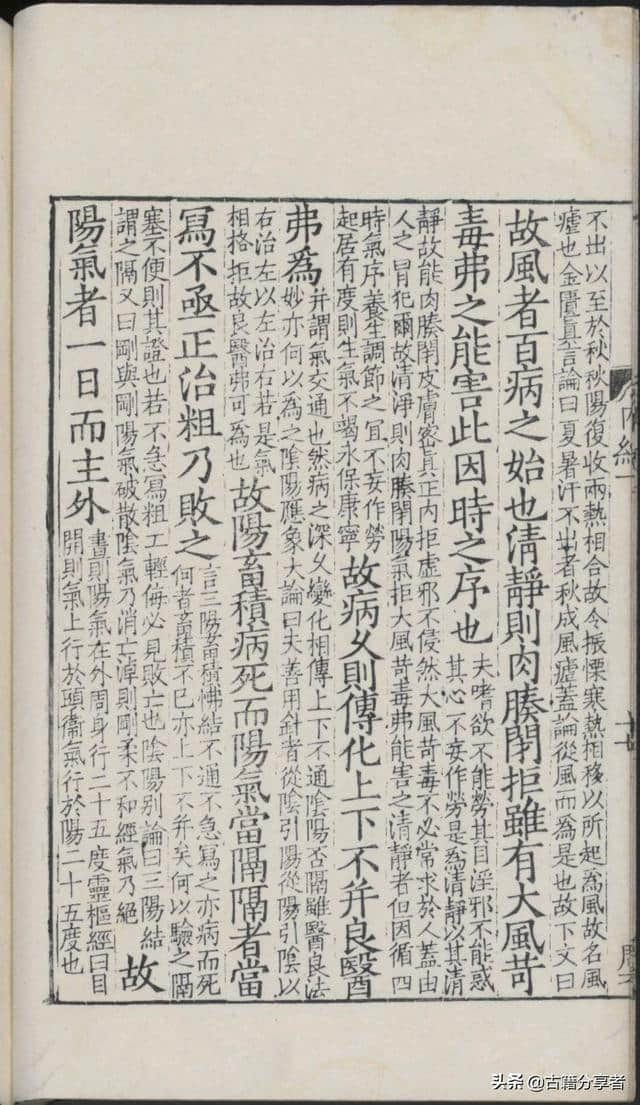 不出以至於秋秋陽復收兩熱相合故令振慄寒熱相移以所起為風故名風
瘧也金匱真言論曰夏暑汗不出者秋成風瘧蓋論從風而為是也故下文曰
故風者百病之始也清靜則肉腠閉拒雖有大風苛
毒弗之能害此因時之序也
夫嗜欲不能勞其目淫邪不能惑
其心不妄作勞是為清靜以其清
靜故能肉腠閉皮膚密真正內拒虛邪不侵然大風苛毒不必常求於人蓋由
人之冒犯爾故清淨則肉腠閉陽氣拒大風苛毒弗能害之清靜者但因循四
時氣序養生調節之宜不妄作勞
起居有度則生氣不竭永保康寧
故病久則傳化上下不并良醫
弗為
并謂氣交通也然病之深久變化相傳上下不通陰陽否隔雖醫良法
妙亦何以為之陰陽應象大論曰夫善用針者從陰引陽從陽引陰以
右治左以左治右若是氣
相格拒故良醫弗可為也
故陽畜積病死而陽氣當隔隔者當
冩不亟正治粗乃敗之
言三陽畜積怫結不通不急冩之亦病而死
何者畜積不已亦上下不并矣何以驗之隔
塞不便則其證也若不急冩粗工輕侮必見敗亡也陰陽別論曰三陽結
謂之隔又曰剛與剛陽氣破散陰氣乃消亡淖則剛柔不和經氣乃絕
故
陽氣者一日而主外
晝則陽氣在外周身行二十五度靈樞經曰目
開則氣上行於頭衞氣行於陽二十五度也
头条 @古籍分享者